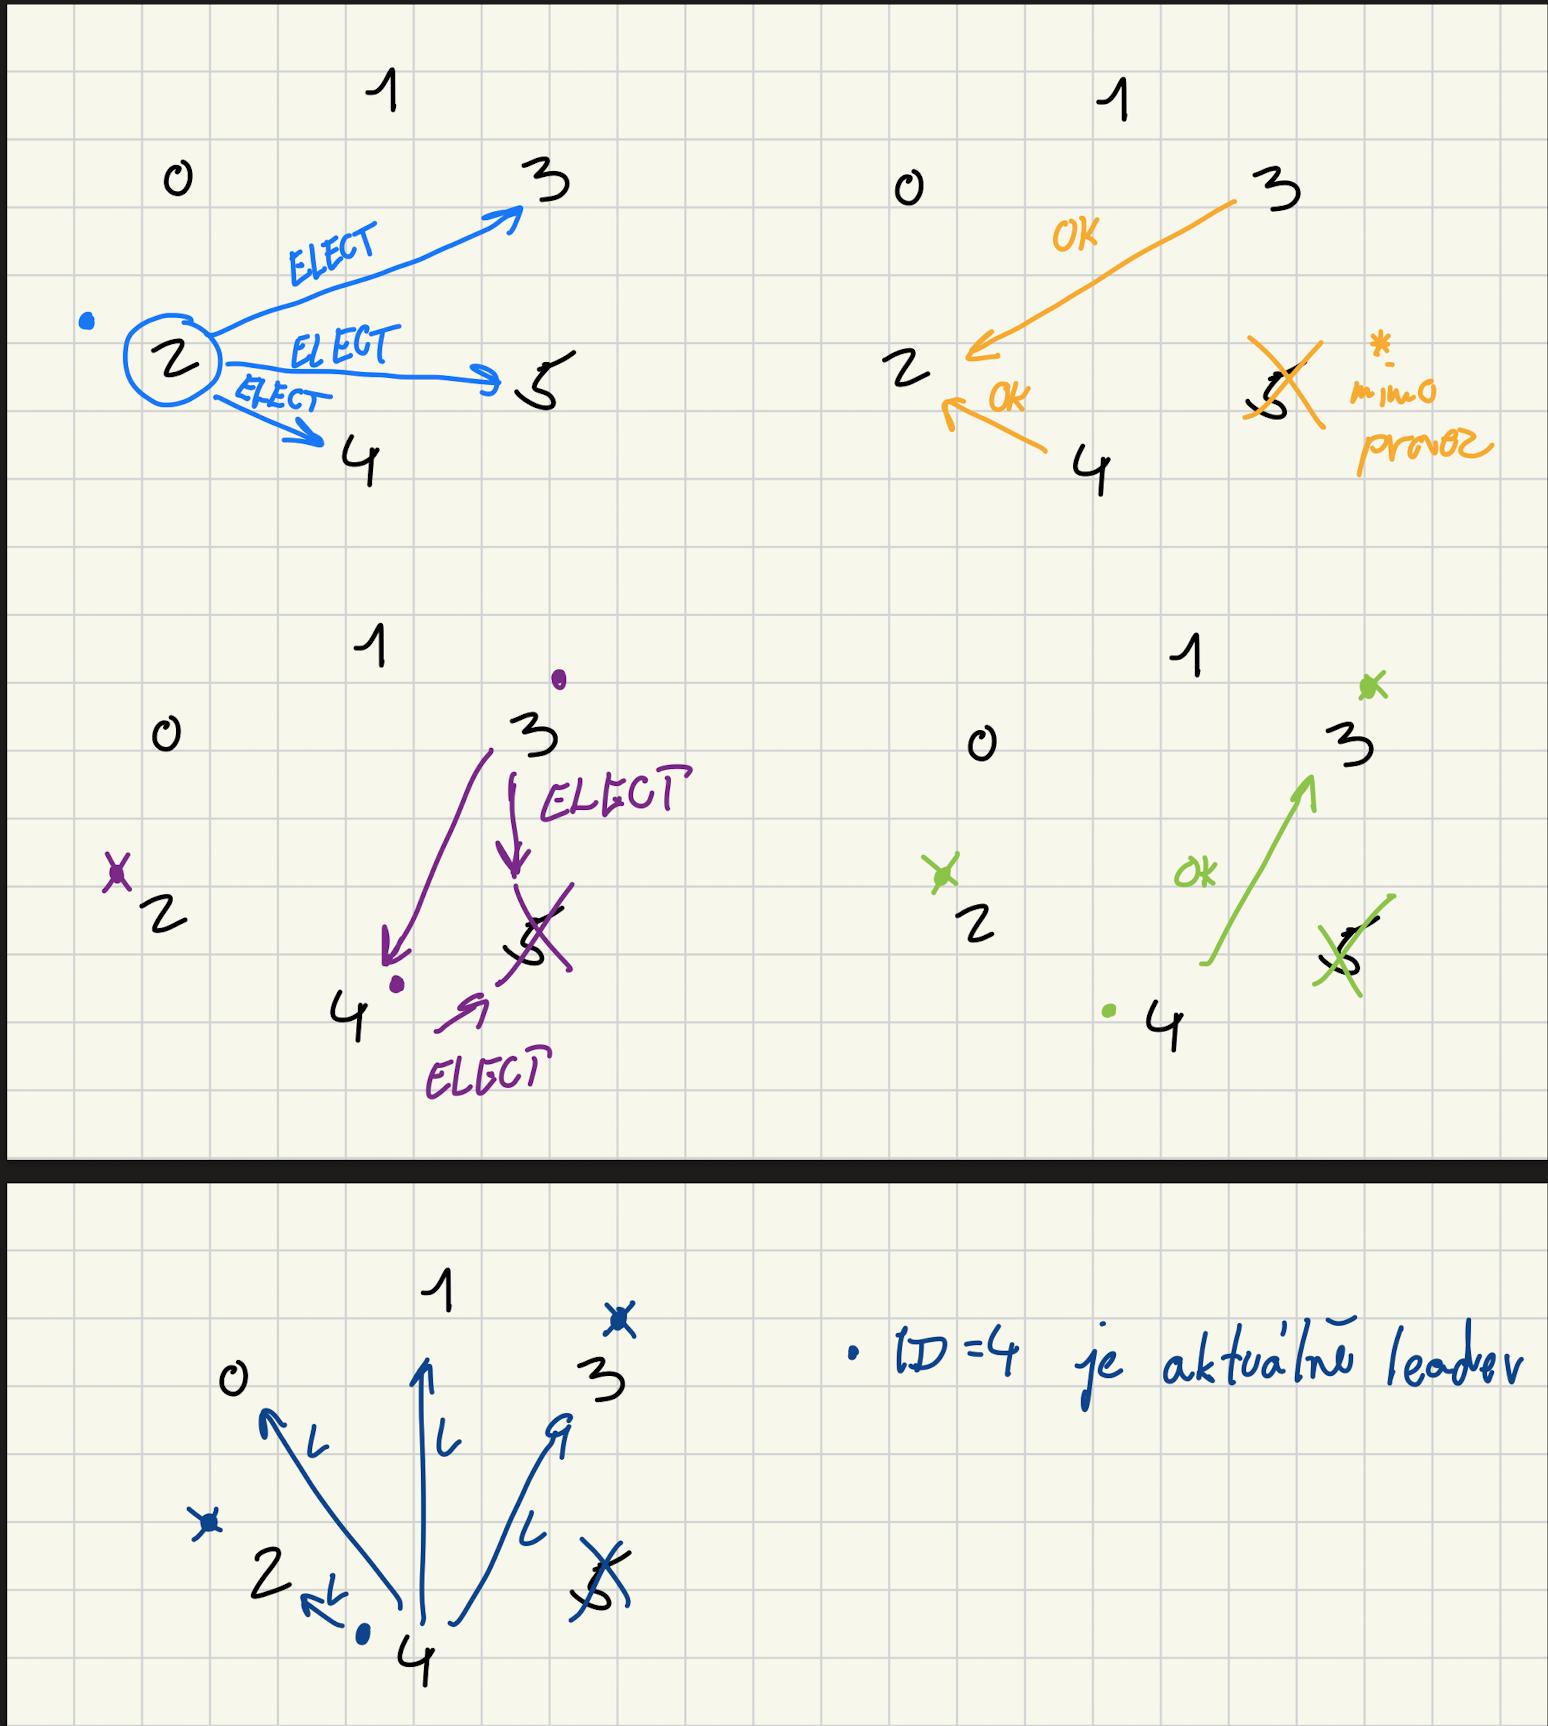 1
0
3
ELECT
2
ELECT
5
ELECT
4
1
0
3
OK
2
OK
5
*
mimo
provoz
4
1
0
3
ELECT
2
5
4
ELECT
1
0
3
OK
2
5
4
1
0
3
L
L
L
2
L
5
4
• ID=4 je aktuálně leader